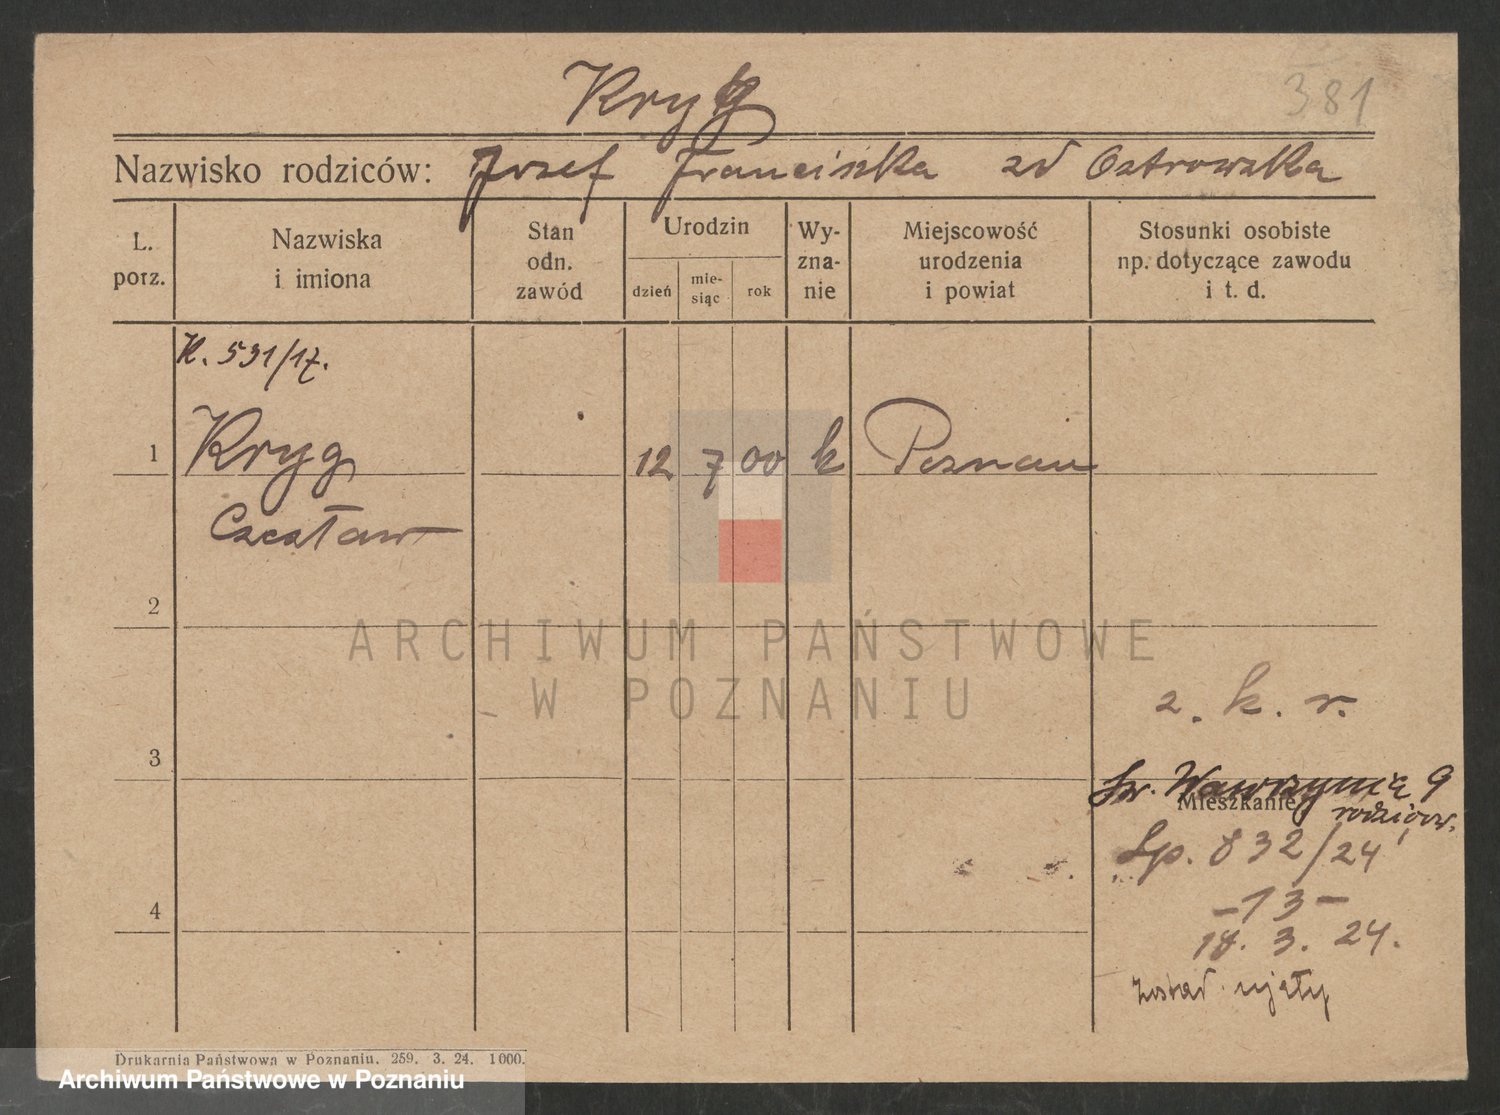 Kryg
381
Nazwisko rodziców: Józef Franciszka zd Ostrowska
L. porz.
Nazwiska i imiona
Stan odn. zawód
Urodzin
dzień
mie-
siąc
rok
Wy-
zna-
nie
Miejscowość urodzenia i powiat
Stosunki osobiste np. dotyczące zawodu i t. d.
K. 531/17.
1 Kryg 12 7 00 k Poznań
Czesław
2
ARCHIWUM PAŃSTWOWE
W POZNANIU
z. k. r.
3
Św. Wawrzyńca 9
Mieszkanie
rodziców.
Sp. 832/24
-13-
4
18. 3. 24.
Został ujęty
Drukarnia Państwowa w Poznaniu. 259. 3. 24. 1000.
Archiwum Państwowe w Poznaniu